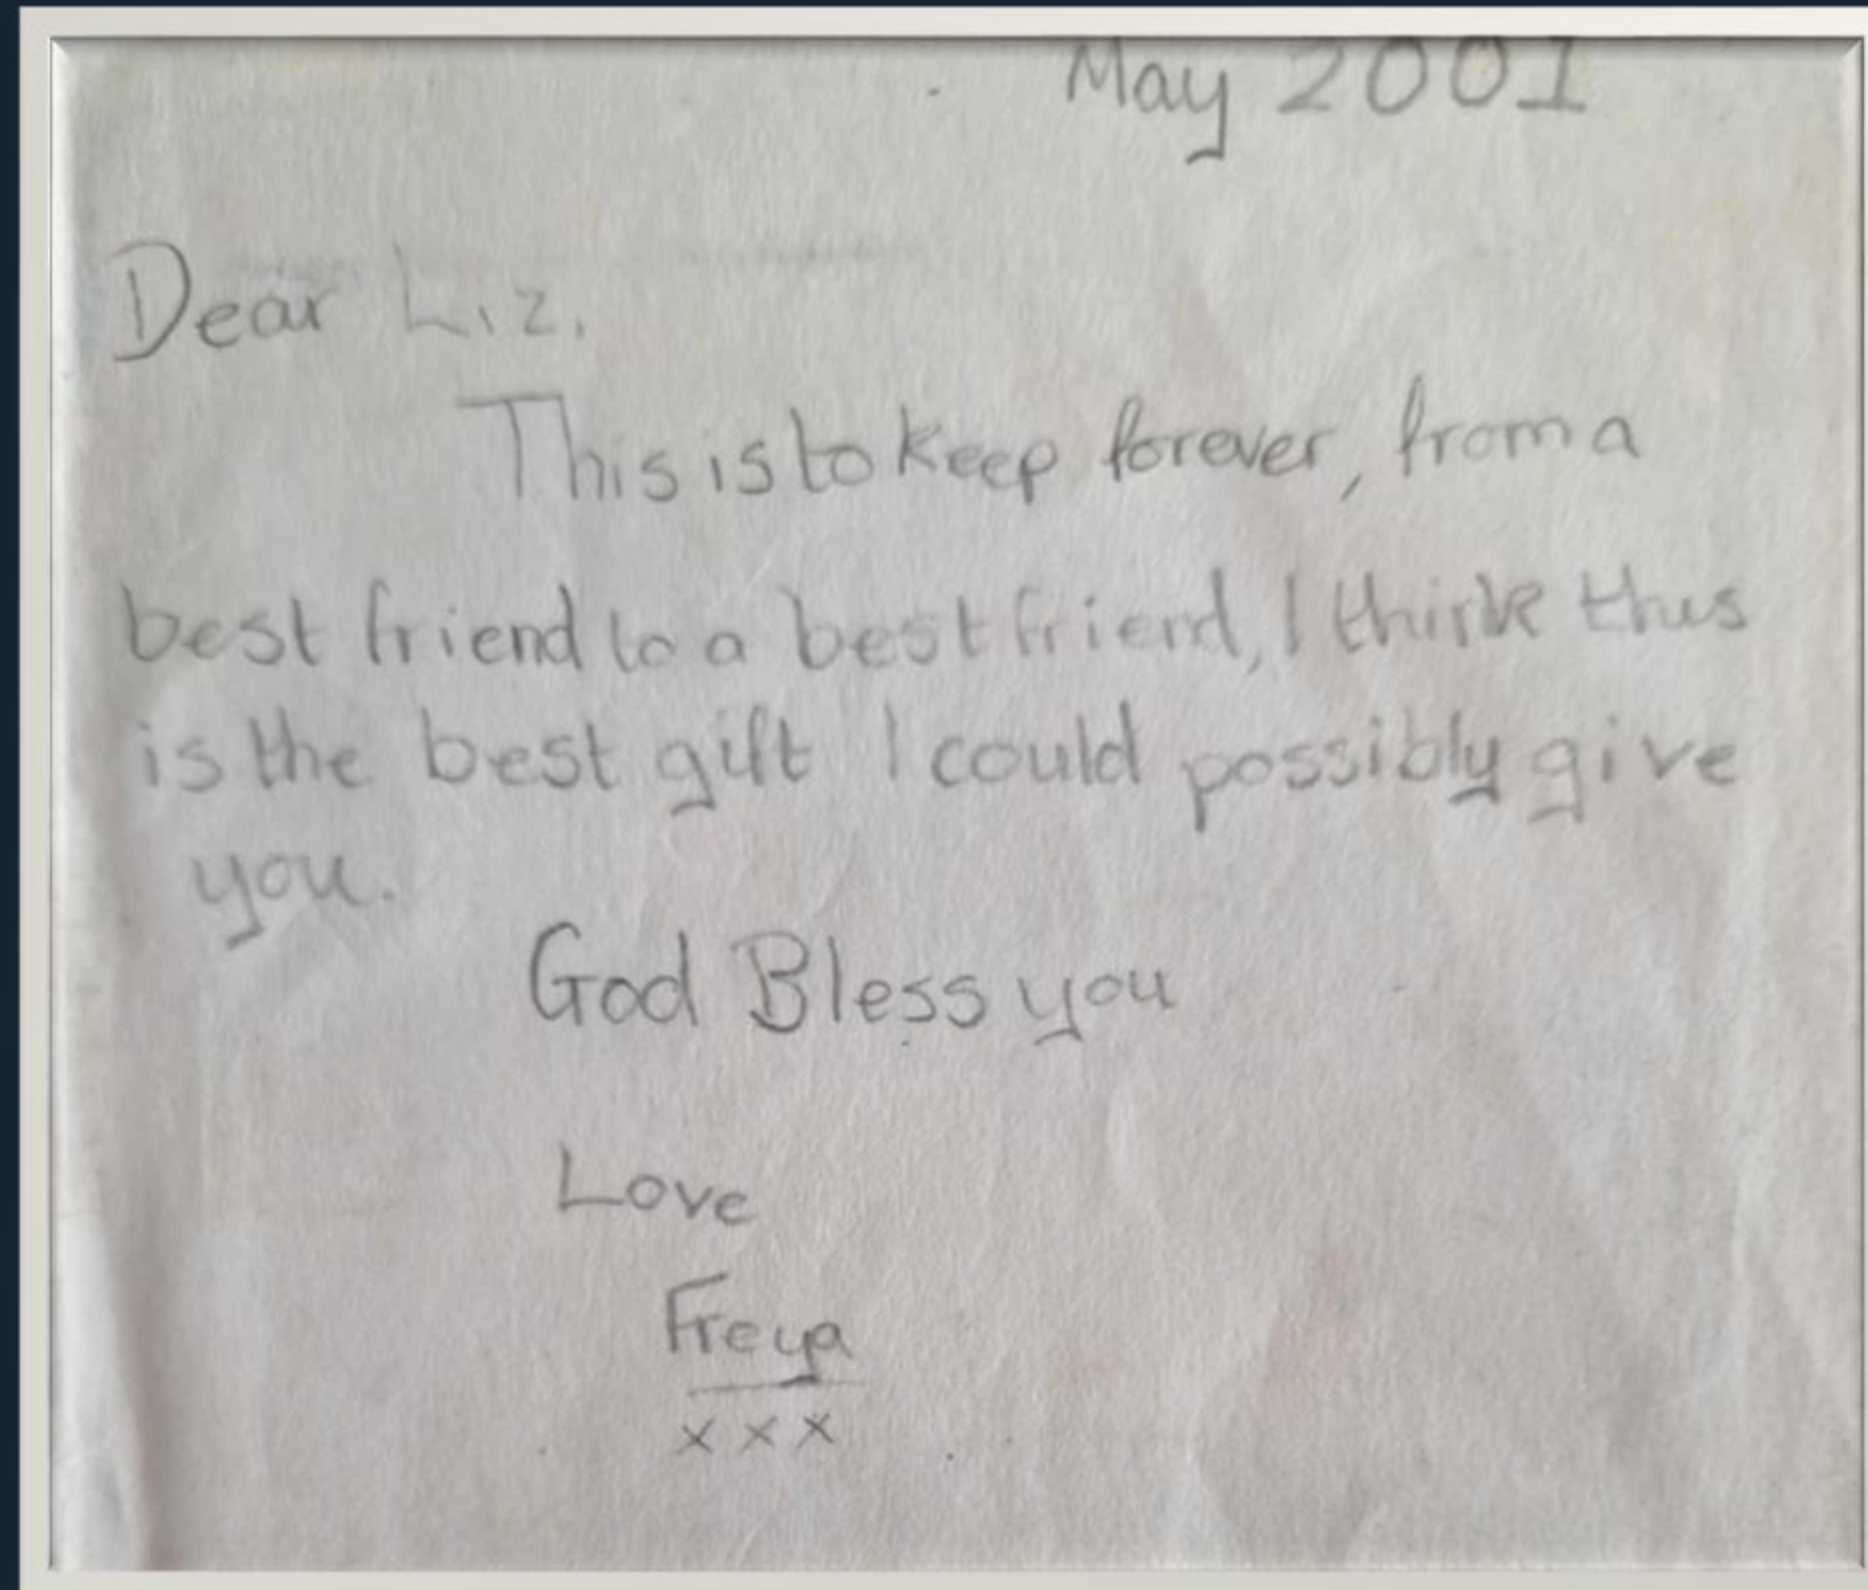 May 2001
Dear Liz,
This is to keep forever, from a
best friend to a best friend, I think this
is the best gift I could possibly give
you.
God Bless you
Love
Freya
x x x